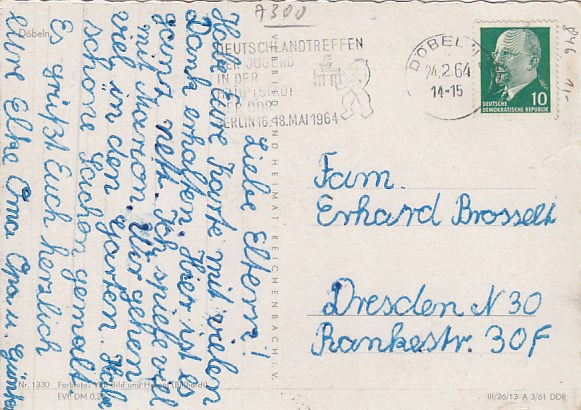 7300
Döbeln
DEUTSCHLANDTREFFEN
DER JUGEND
IN DER
HAUPTSTADT
DER DDR
BERLIN 16.-18. MAI 1964
DÖBELN
24.2.64
14-15
DEUTSCHE
DEMOKRATISCHE REPUBLIK
10
Liebe Eltern!
Habe Eure Karte mit vielen
Dank erhalten. Hier ist es
ganz nett. Ich spiele viel
mit Marion. Wir gehen
viel in den Garten. Habe
schone Sachen gemalt.
Es grüßt Euch herzlich
eure Elke Oma Opa u. Günter
Fam.
Erhard Brosselt
Dresden N 30
Rankestr. 30F
VEB BILD UND HEIMAT, REICHENBACH I. V.
Nr. 1330 Farbfotos VEB Bild und Heimat
EVP DM 0,25
III/26/13 A 3/61 DDR